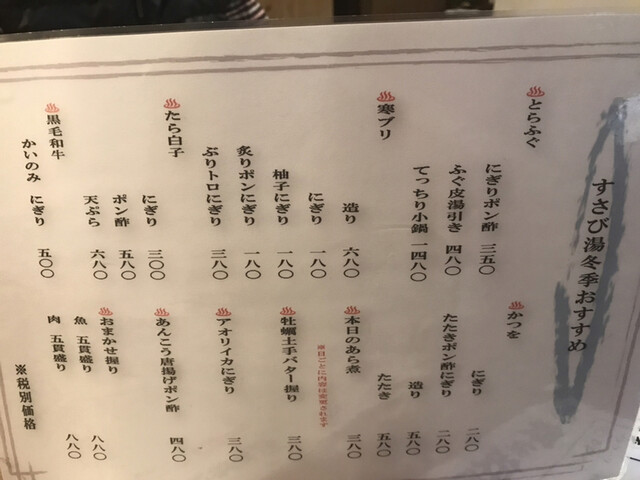 すさび湯冬季おすすめ
とらふぐ
にぎりポン酢 三五〇
ふぐ皮湯引き 四八〇
てっちり小鍋 一四八〇
寒ブリ
造り 六八〇
にぎり 一八〇
柚子にぎり 一八〇
炙りポンにぎり 一八〇
ぶりトロにぎり 三八〇
たら白子
にぎり 三〇〇
ポン酢 五八〇
天ぷら 六八〇
黒毛和牛
かいのみ にぎり 五〇〇
かつを
にぎり 二八〇
たたきポン酢にぎり 二八〇
造り 五八〇
たたき 五八〇
本日のあら煮 三八〇
※日ごとに内容は変更されます
牡蠣土手バター握り 三八〇
アオリイカにぎり 三八〇
あんこう唐揚げポン酢 四八〇
おまかせ握り
魚 五貫盛り 八八〇
肉 五貫盛り 八八〇
※税別価格